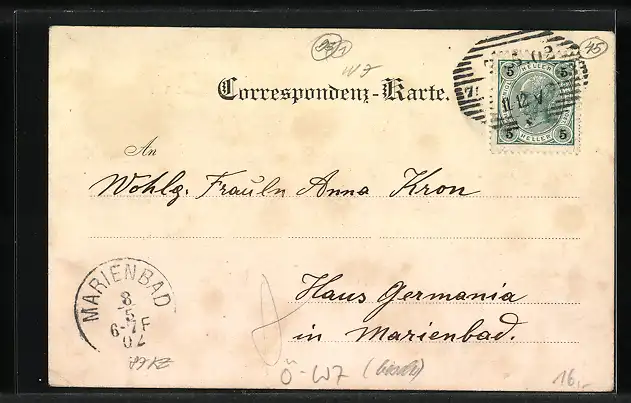 45
Correspondenz-Karte.
5 HELLER 5
5 HELLER 5
An
Wohlg. Fräuln Anna Kron
Haus Germania
in Marienbad.
MARIENBAD
8
5
6-7F
02
16,-